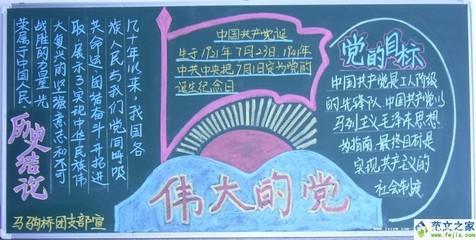 几十年以来，我国各
族人民与我们党同呼吸
共命运、团结奋斗、开拓进
取展示了实现中华民族伟
大复兴的坚强意志和不可
战胜的力量
荣属于中国人民
历史结论
马驹桥团支部宣
中国共产党诞
生于1921年7月23日.1941年
中共中央把7月1日定为党的
诞生纪念日
伟大的党
党的目标
中国共产党是工人阶级
的先锋队,中国共产党以
马列主义毛泽东思想
为指南,最终目标是
实现共产主义的
社会制度
范文之家
www.fejia.com